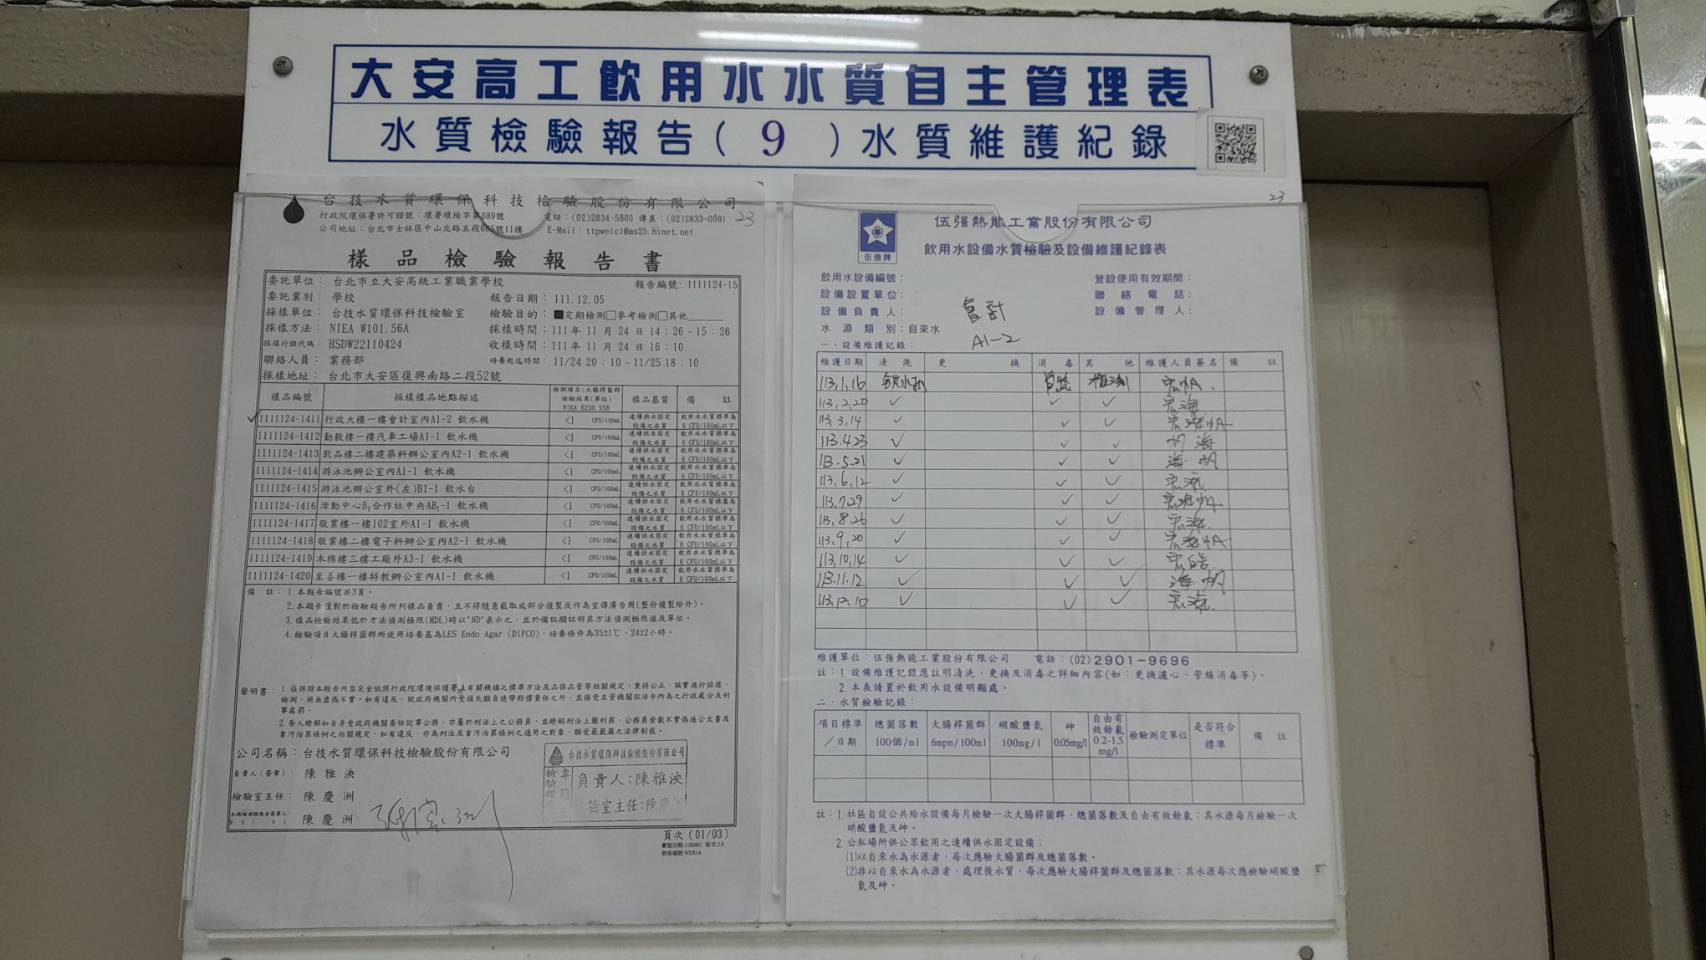 大安高工飲用水水質自主管理表
水質檢驗報告( 9 )水質維護紀錄
台技水質環保科技檢驗股份有限公司
行政院環保署許可證號：環署環檢字第089號 電話：(02)2834-5800 傳真：(02)2833-0091 23
公司地址：台北市士林區中山北路五段685號11樓 E-Mail：ttpwelcl@ms25.hinet.net
樣品檢驗報告書
委託單位：台北市立大安高級工業職業學校 報告編號：1111124-15
委託業別：學校 報告日期：111.12.05
採樣單位：台技水質環保科技檢驗室 檢驗目的：■定期檢測□參考檢測□其他
採樣方法：NIEA W101.56A 採樣時間：111年11月24日14:26-15:26
採樣行程代碼：HSDW22110424 收樣時間：111年11月24日16:10
聯絡人員：業務部 培養起迄時間：11/24 20:10~11/25 18:10
採樣地址：台北市大安區復興南路二段52號
樣品編號 採樣樣品地點描述 檢測項目：大腸桿菌群 檢驗結果(單位) NIEA E230.55B 樣品基質 備註
✓1111124-1411 行政大樓一樓會計室內A1-2 飲水機 <1 CFU/100mL 連續供水固定設備之水質 飲用水水質標準為6 CFU/100mL以下
1111124-1412 勤毅樓一樓汽車工場A1-1 飲水機 <1 CFU/100mL 連續供水固定設備之水質 飲用水水質標準為6 CFU/100mL以下
1111124-1413 敦品樓二樓建築科辦公室內A2-1 飲水機 <1 CFU/100mL 連續供水固定設備之水質 飲用水水質標準為6 CFU/100mL以下
1111124-1414 游泳池辦公室內A1-1 飲水機 <1 CFU/100mL 連續供水固定設備之水質 飲用水水質標準為6 CFU/100mL以下
1111124-1415 游泳池辦公室外(左)B1-1 飲水台 <1 CFU/100mL 連續供水固定設備之水質 飲用水水質標準為6 CFU/100mL以下
1111124-1416 活動中心B1合作社中央AB1-1 飲水機 <1 CFU/100mL 連續供水固定設備之水質 飲用水水質標準為6 CFU/100mL以下
1111124-1417 敬業樓一樓102室外A1-1 飲水機 <1 CFU/100mL 連續供水固定設備之水質 飲用水水質標準為6 CFU/100mL以下
1111124-1418 敬業樓二樓電子科辦公室內A2-1 飲水機 <1 CFU/100mL 連續供水固定設備之水質 飲用水水質標準為6 CFU/100mL以下
1111124-1419 木棉樓三樓工廠外A3-1 飲水機 <1 CFU/100mL 連續供水固定設備之水質 飲用水水質標準為6 CFU/100mL以下
1111124-1420 至善樓一樓特教辦公室內A1-1 飲水機 <1 CFU/100mL 連續供水固定設備之水質 飲用水水質標準為6 CFU/100mL以下
備註：1.本報告編號共3頁。
2.本報告僅對於檢驗報告所列樣品負責，且不得隨意截取或部分複製及作為宣傳廣告用(整份複製除外)。
3.樣品檢驗結果低於方法偵測極限(MDL)時以"ND"表示之，並於備註欄註明其方法偵測極限值及單位。
4.檢驗項目大腸桿菌群所使用培養基為LES Endo Agar (DIFCO)，培養條件為35±1℃，24±2小時。
聲明書：1.茲保證本報告內容完全依照行政院環境保護署及有關機構之標準方法及品保品管等相關規定，秉持公正、誠實進行採樣、
檢測，絕無虛偽不實，如有違反，就政府機關所受損失願負連帶賠償責任之外，並接受主管機關依法令所為之行政處分及刑
事處罰。
2.吾人瞭解如自身受政府機關委任從事公務，亦屬於刑法上之公務員，並瞭解刑法上圖利罪、公務員登載不實偽造公文書及
貪污治罪條例之相關規定，如有違反，亦為刑法及貪污治罪條例之適用之對象，願受最嚴厲之法律制裁。
公司名稱：台技水質環保科技檢驗股份有限公司
負責人(簽章)：陳雅泱
檢驗室主任：陳慶洲
陳慶洲
台技水質環保科技檢驗股份有限公司
負責人:陳雅泱
頁次(01/03)
23
伍強牌
伍強熱能工業股份有限公司
飲用水設備水質檢驗及設備維護紀錄表
飲用水設備編號： 登設使用有效期間：
設備設置單位： 聯絡電話：
設備負責人： 會計 設備管理人：
水源類別：自來水 A1-2
一、設備維護記錄：
維護日期 清洗 更換 消毒 其他 維護人員簽名 備註
113.1.16 飲水機
113.2.20 ✓ ✓ ✓
113.3.14 ✓ ✓ ✓
113.4.23 ✓ ✓ ✓
113.5.21 ✓ ✓ ✓
113.6.12 ✓ ✓ ✓
113.7.29 ✓ ✓ ✓
113.8.26 ✓ ✓ ✓
113.9.20 ✓ ✓ ✓
113.10.14 ✓ ✓ ✓
113.11.12 ✓ ✓ ✓
113.12.10 ✓ ✓ ✓
維護單位：伍強熱能工業股份有限公司 電話：(02)2901-9696
註：1.設備維護記錄應註明清洗，更換及消毒之詳細內容(如：更換濾心、管線消毒等)。
2.本表請置於飲用水設備明顯處。
二、水質檢驗記錄：
項目標準／日期 總菌落數100個/ml 大腸桿菌群6mpn/100ml 硝酸鹽氮100mg/l 砷0.05mg/l 自由有效餘氯0.2-1.5mg/l 檢驗測定單位 是否符合標準 備註
註：1.社區自設公共給水設備每月檢驗一次大腸桿菌群、總菌落數及自由有效餘氯；其水源每月檢驗一次
硝酸鹽氮及砷。
2.公私場所供公眾飲用之連續供水固定設備：
(1)以自來水為水源者，每次應驗大腸菌群及總菌落數。
(2)非以自來水為水源者，處理後水質，每次應驗大腸桿菌群及總菌落數；其水源每次應檢驗硝酸鹽
氮及砷。